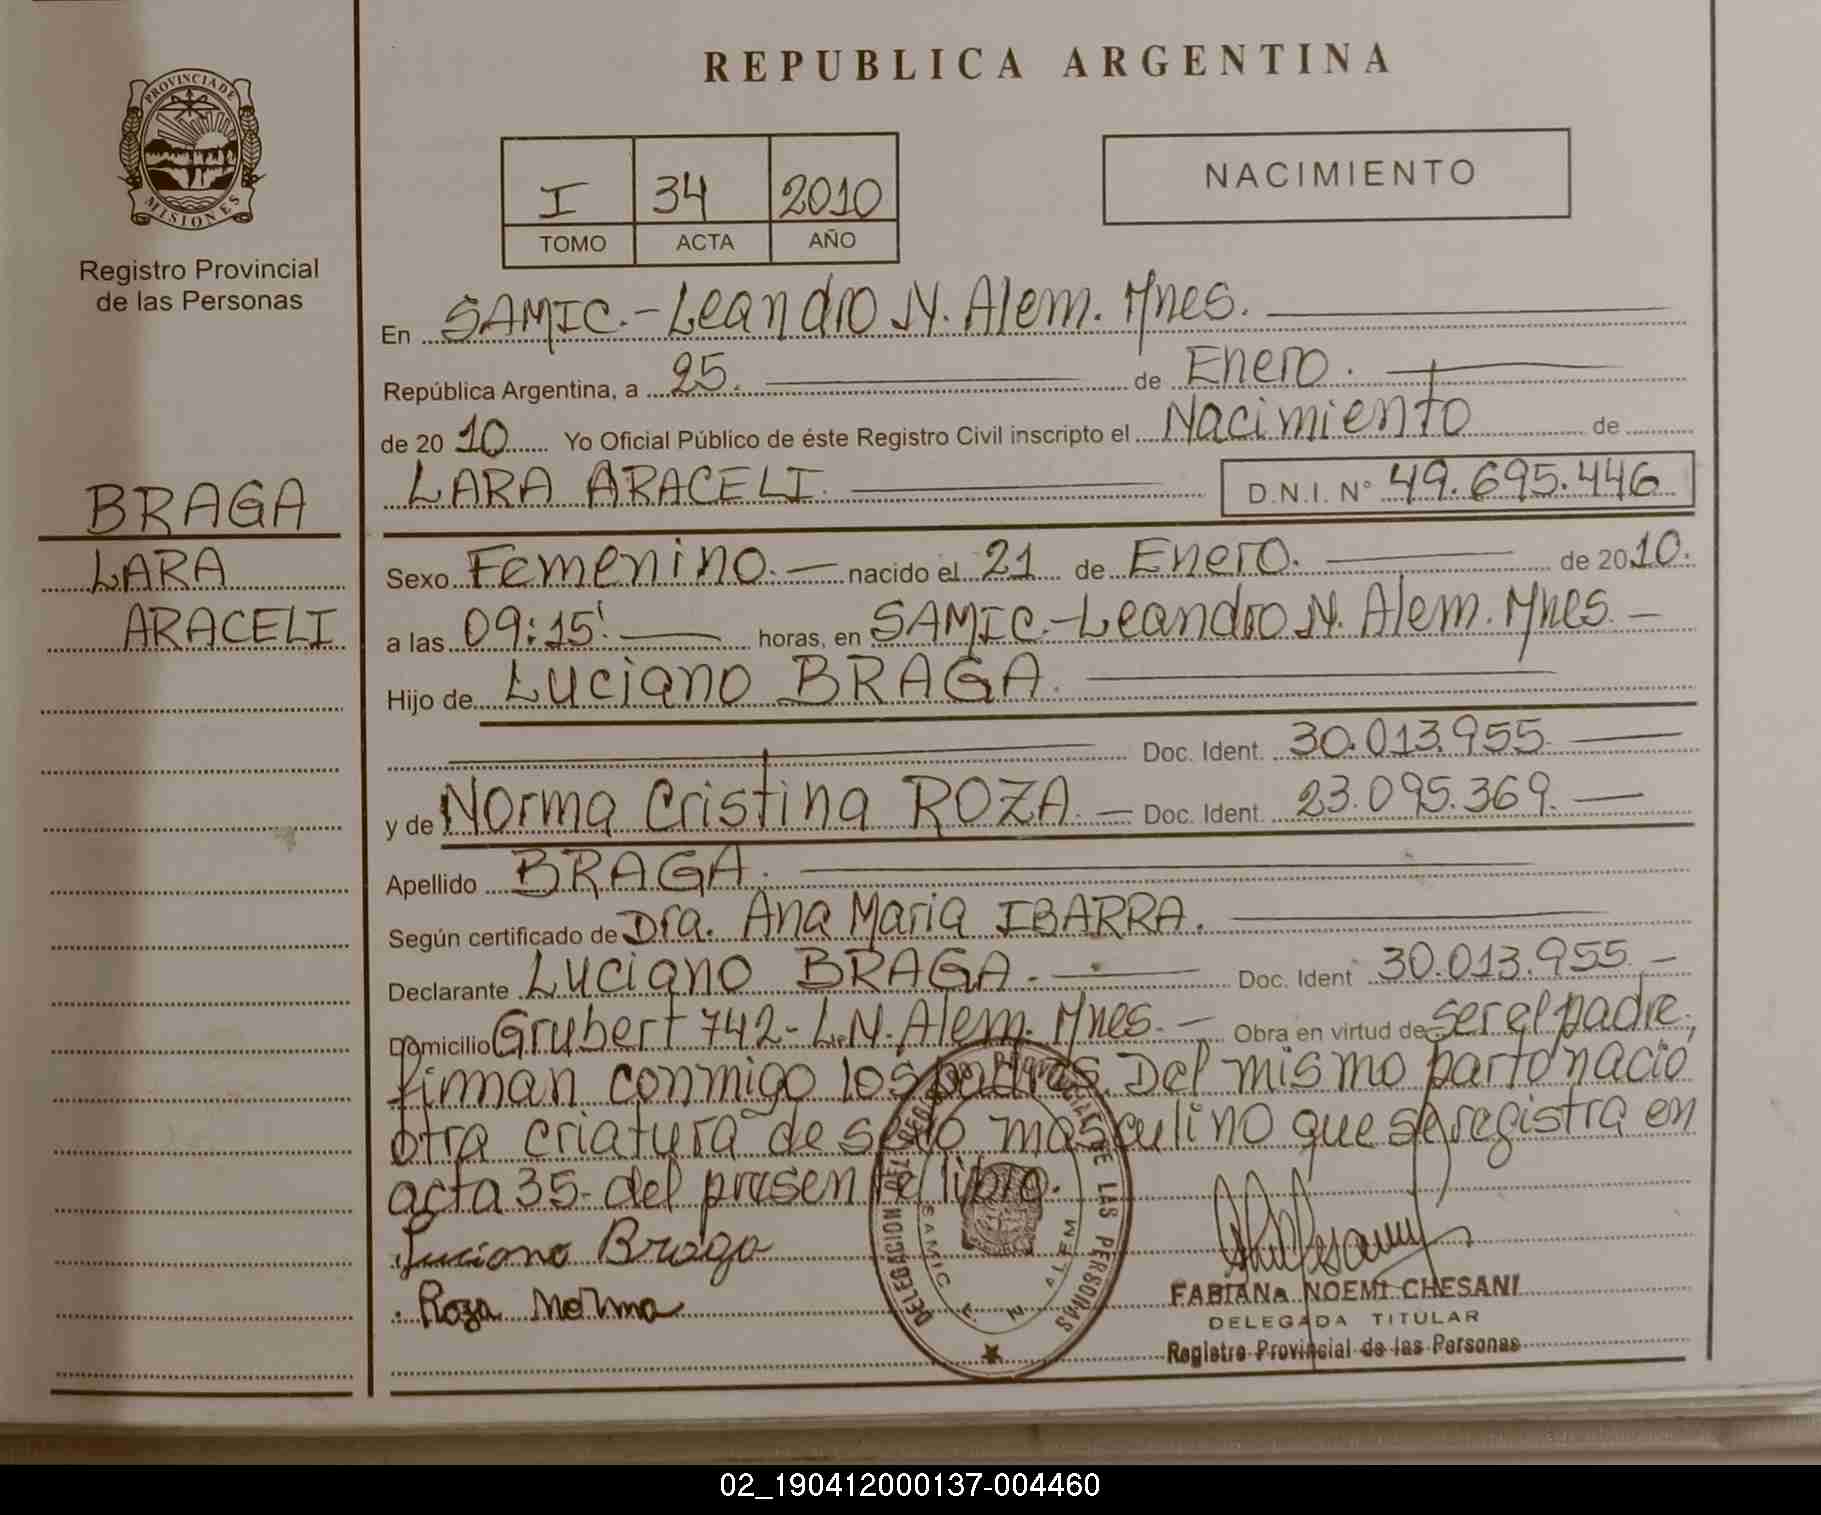 REPUBLICA ARGENTINA
PROVINCIA DE MISIONES
Registro Provincial
de las Personas
I 34 2010
TOMO ACTA AÑO
NACIMIENTO
En SAMIC.-Leandro N. Alem. Mnes.
República Argentina, a 25. de Enero.
de 2010 Yo Oficial Público de éste Registro Civil inscripto el Nacimiento de
LARA ARACELI. D.N.I. N° 49.695.446
BRAGA
LARA
ARACELI
Sexo Femenino.- nacido el 21 de Enero. de 2010.
a las 09:15'. horas, en SAMIC.-Leandro N. Alem. Mnes.-
Hijo de Luciano BRAGA.
Doc. Ident. 30.013.955.
y de Norma Cristina ROZA.- Doc. Ident. 23.095.369.
Apellido BRAGA.
Según certificado de Dra. Ana Maria IBARRA.
Declarante Luciano BRAGA.- Doc. Ident 30.013.955.-
Domicilio Grubert 742-L.N.Alem. Mnes.- Obra en virtud de ser el padre,
firman conmigo los padres. Del mismo parto nació
otra criatura de sexo masculino que se registra en
acta 35- del presente libro.
Luciano Braga
Roza Norma
DELEGACION DE LAS PERSONAS
SAMIC L. N. ALEM
FABIANA NOEMI CHESANI
DELEGADA TITULAR
Registro Provincial de las Personas
02_190412000137-004460